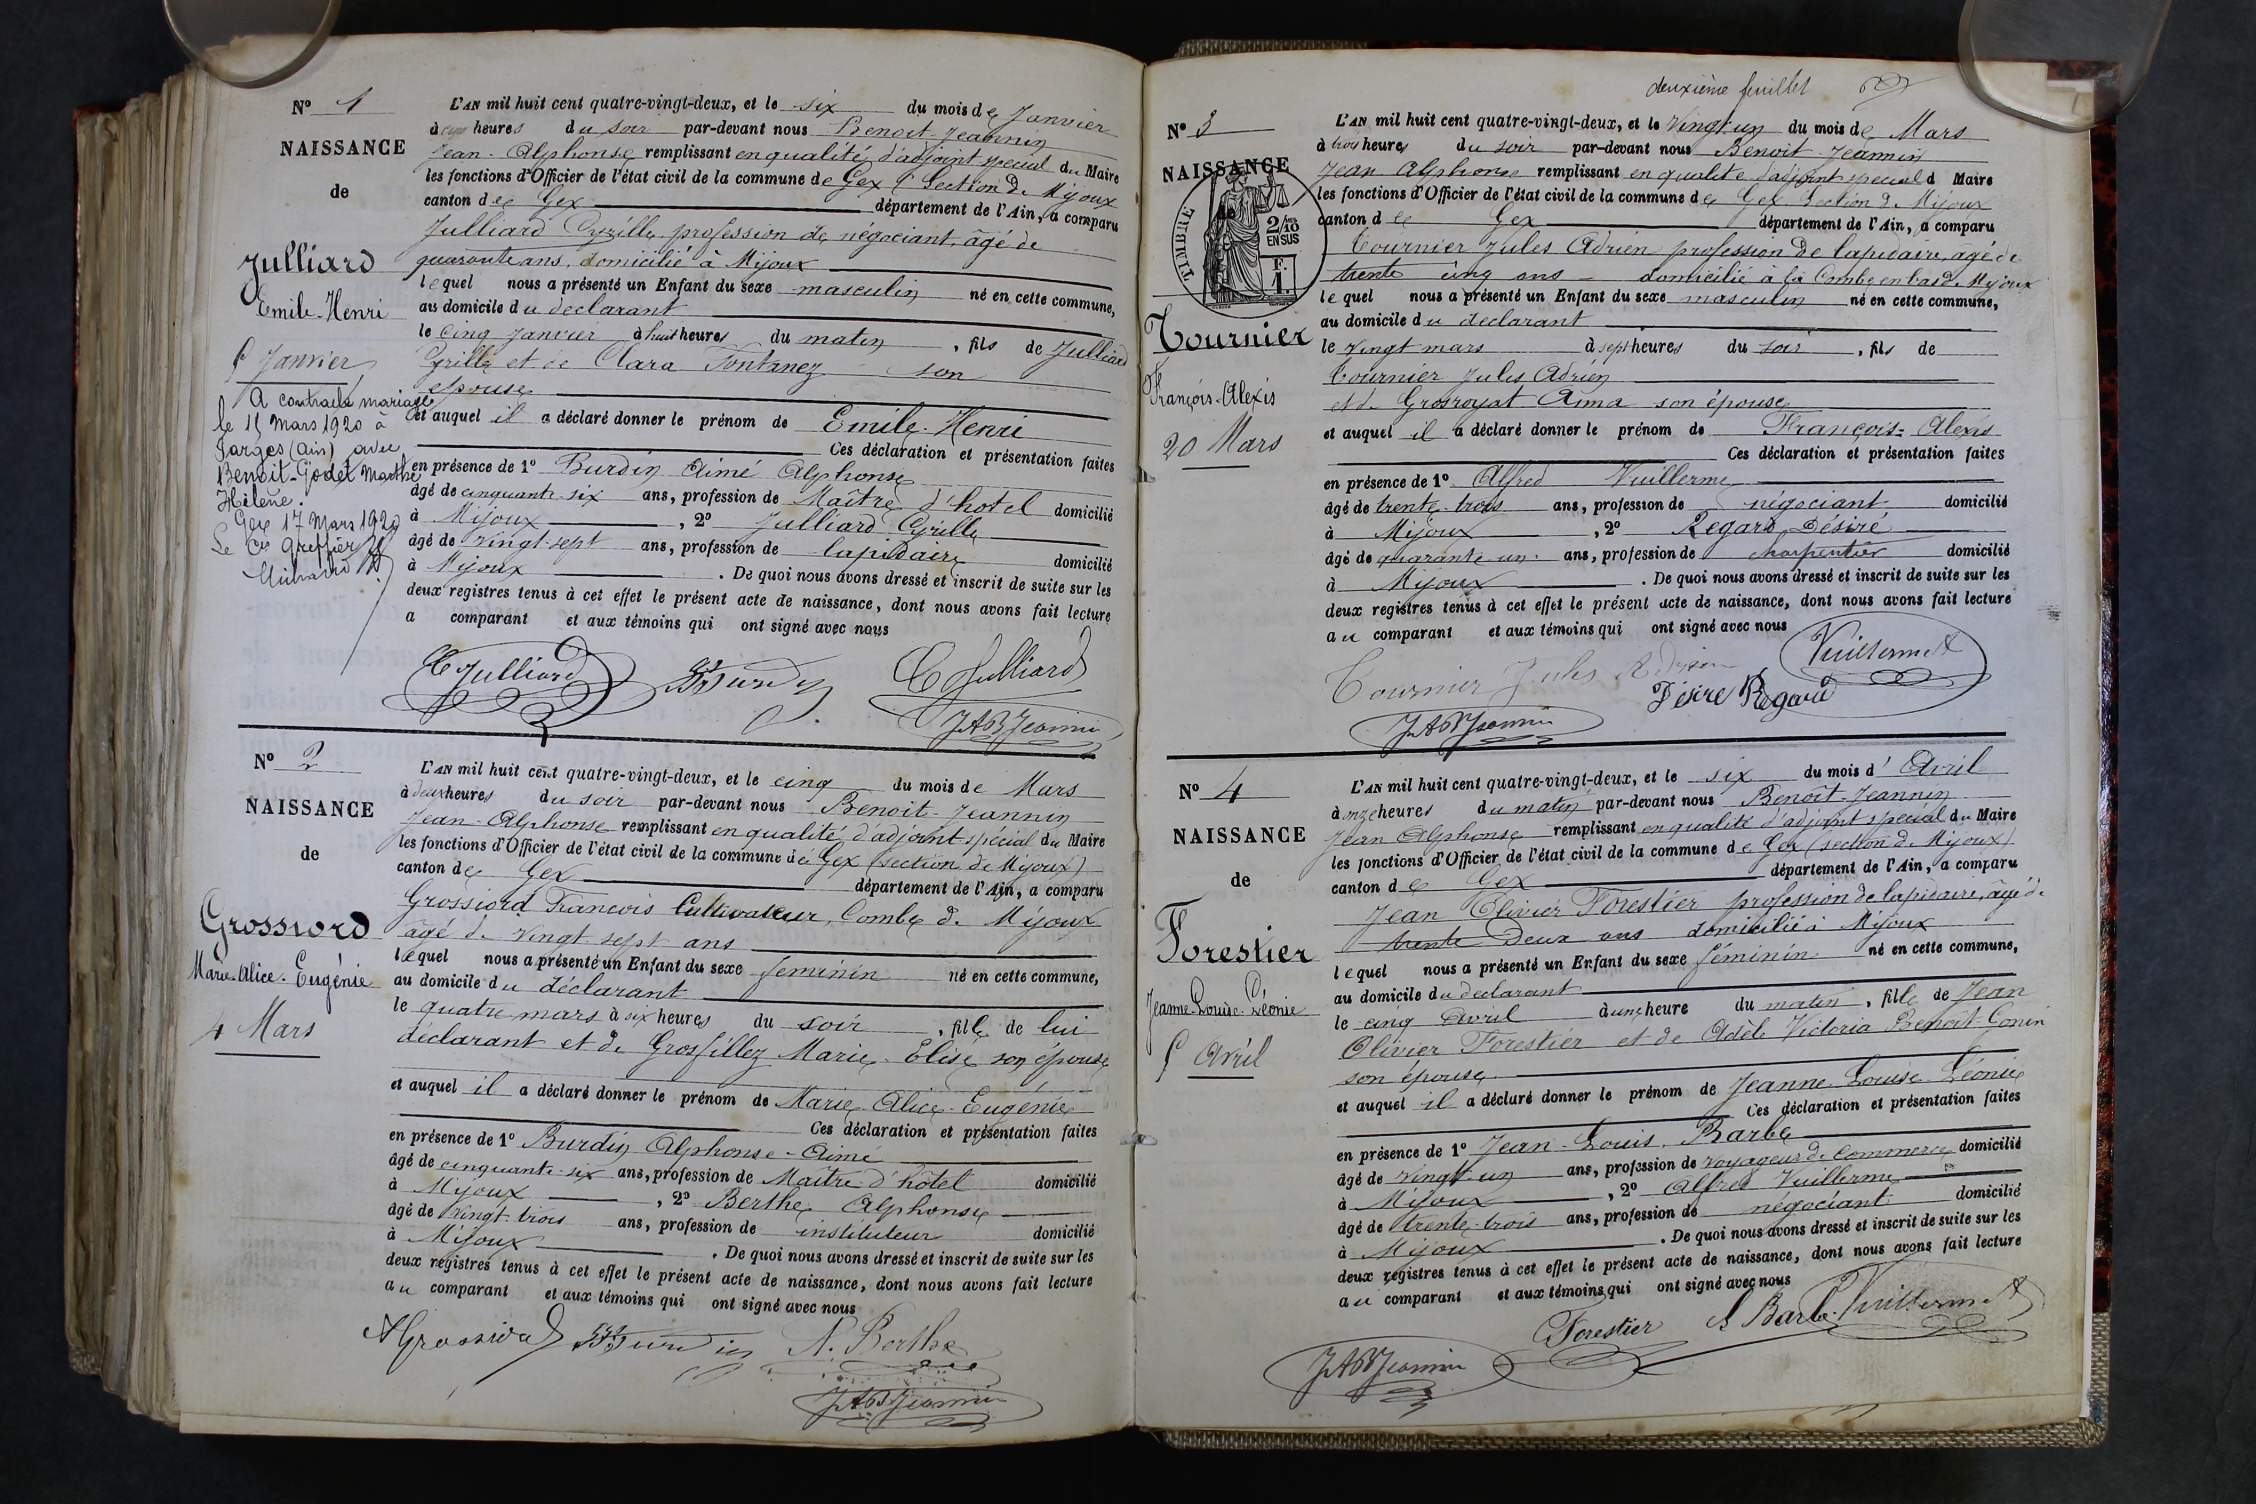 N° 1
NAISSANCE
de
Julliard
Emile-Henri
5 Janvier
A contracté mariage
le 11 Mars 1920 à
Farges (Ain) avec
Benoit-Godet Marthe
Hélène.
Gex 17 Mars 1920
Le Cis Greffier
L'AN mil huit cent quatre-vingt-deux, et le six du mois de Janvier
à cinq heures du soir par-devant nous Benoit-Jeannin
Jean-Alphonse remplissant en qualité d'adjoint spécial du Maire
les fonctions d'Officier de l'état civil de la commune de Gex (Section de Mijoux
canton de Gex département de l'Ain, a comparu
Julliard Cyrille profession de négociant, âgé de
quarante ans, domicilié à Mijoux
lequel nous a présenté un Enfant du sexe masculin né en cette commune,
au domicile du déclarant
le cinq Janvier à huit heures du matin, fils de Julliard
Cyrille et de Clara Fontanez son
épouse
et auquel il a déclaré donner le prénom de Emile-Henri
Ces déclaration et présentation faites
en présence de 1° Burdin Aimé Alphonse
âgé de cinquante-six ans, profession de Maître d'hotel domicilié
à Mijoux, 2° Julliard Cyrille
âgé de vingt-sept ans, profession de lapidaire domicilié
à Mijoux. De quoi nous avons dressé et inscrit de suite sur les
deux registres tenus à cet effet le présent acte de naissance, dont nous avons fait lecture
a comparant et aux témoins qui ont signé avec nous
C Julliard Burdin C Julliard
JAB Jeannin
N° 2
NAISSANCE
de
Grossiord
Marie-Alice-Eugénie
4 Mars
L'AN mil huit cent quatre-vingt-deux, et le cinq du mois de Mars
à deux heures du soir par-devant nous Benoit-Jeannin
Jean-Alphonse remplissant en qualité d'adjoint spécial du Maire
les fonctions d'Officier de l'état civil de la commune de Gex (section de Mijoux)
canton de Gex département de l'Ain, a comparu
Grossiord François Cultivateur, Combe de Mijoux
âgé de vingt sept ans
lequel nous a présenté un Enfant du sexe féminin né en cette commune,
au domicile du déclarant
le quatre mars à six heures du soir, fille de lui
déclarant et de Grosfillez Marie-Elise son épouse
et auquel il a déclaré donner le prénom de Marie-Alice-Eugénie
Ces déclaration et présentation faites
en présence de 1° Burdin Alphonse-Aimé
âgé de cinquante-six ans, profession de Maître d'hôtel domicilié
à Mijoux, 2° Berthe Alphonse
âgé de vingt-trois ans, profession de instituteur domicilié
à Mijoux. De quoi nous avons dressé et inscrit de suite sur les
deux registres tenus à cet effet le présent acte de naissance, dont nous avons fait lecture
au comparant et aux témoins qui ont signé avec nous
Grossiord Burdin A. Berthe
JAB Jeannin
deuxième feuillet
N° 3
NAISSANCE
de
TIMBRE
2/10
EN SUS
F.
1.
Tournier
François-Alexis
20 Mars
L'AN mil huit cent quatre-vingt-deux, et le vingt-un du mois de Mars
à trois heures du soir par-devant nous Benoit-Jeannin
Jean Alphonse remplissant en qualité d'adjoint spécial d Maire
les fonctions d'Officier de l'état civil de la commune de Gex Section de Mijoux
canton de Gex département de l'Ain, a comparu
Tournier Jules Adrien profession de lapidaire, âgé de
trente cinq ans domicilié à la Combe en bas de Mijoux
lequel nous a présenté un Enfant du sexe masculin né en cette commune,
au domicile du déclarant
le vingt mars à sept heures du soir, fils de
Tournier Jules Adrien
et de Grosroyat Anna son épouse
et auquel il a déclaré donner le prénom de François-Alexis
Ces déclaration et présentation faites
en présence de 1° Alfred Vuillerme
âgé de trente-trois ans, profession de négociant domicilié
à Mijoux, 2° Regard Désiré
âgé de quarante-un ans, profession de charpentier domicilié
à Mijoux. De quoi nous avons dressé et inscrit de suite sur les
deux registres tenus à cet effet le présent acte de naissance, dont nous avons fait lecture
au comparant et aux témoins qui ont signé avec nous
Tournier Jules Adrien Vuillerme A
Désiré Regard
JAB Jeannin
N° 4
NAISSANCE
de
Forestier
Jeanne-Louise-Léonie
5 Avril
L'AN mil huit cent quatre-vingt-deux, et le six du mois d'Avril
à onze heures du matin par-devant nous Benoit-Jeannin
Jean Alphonse remplissant en qualité d'adjoint spécial du Maire
les fonctions d'Officier de l'état civil de la commune de Gex (section de Mijoux)
canton de Gex département de l'Ain, a comparu
Jean Olivier Forestier profession de lapidaire, âgé de
trente deux ans domicilié à Mijoux
lequel nous a présenté un Enfant du sexe féminin né en cette commune,
au domicile du déclarant
le cinq Avril à une heure du matin, fille de Jean
Olivier Forestier et de Adèle Victoria Benoit-Gonin
son épouse
et auquel il a déclaré donner le prénom de Jeanne Louise Léonie
Ces déclaration et présentation faites
en présence de 1° Jean-Louis Barbe
âgé de vingt-un ans, profession de voyageur de commerce domicilié
à Mijoux, 2° Alfred Vuillerme
âgé de trente-trois ans, profession de négociant domicilié
à Mijoux. De quoi nous avons dressé et inscrit de suite sur les
deux registres tenus à cet effet le présent acte de naissance, dont nous avons fait lecture
au comparant et aux témoins qui ont signé avec nous
Forestier L Barbe Vuillerme A
JAB Jeannin